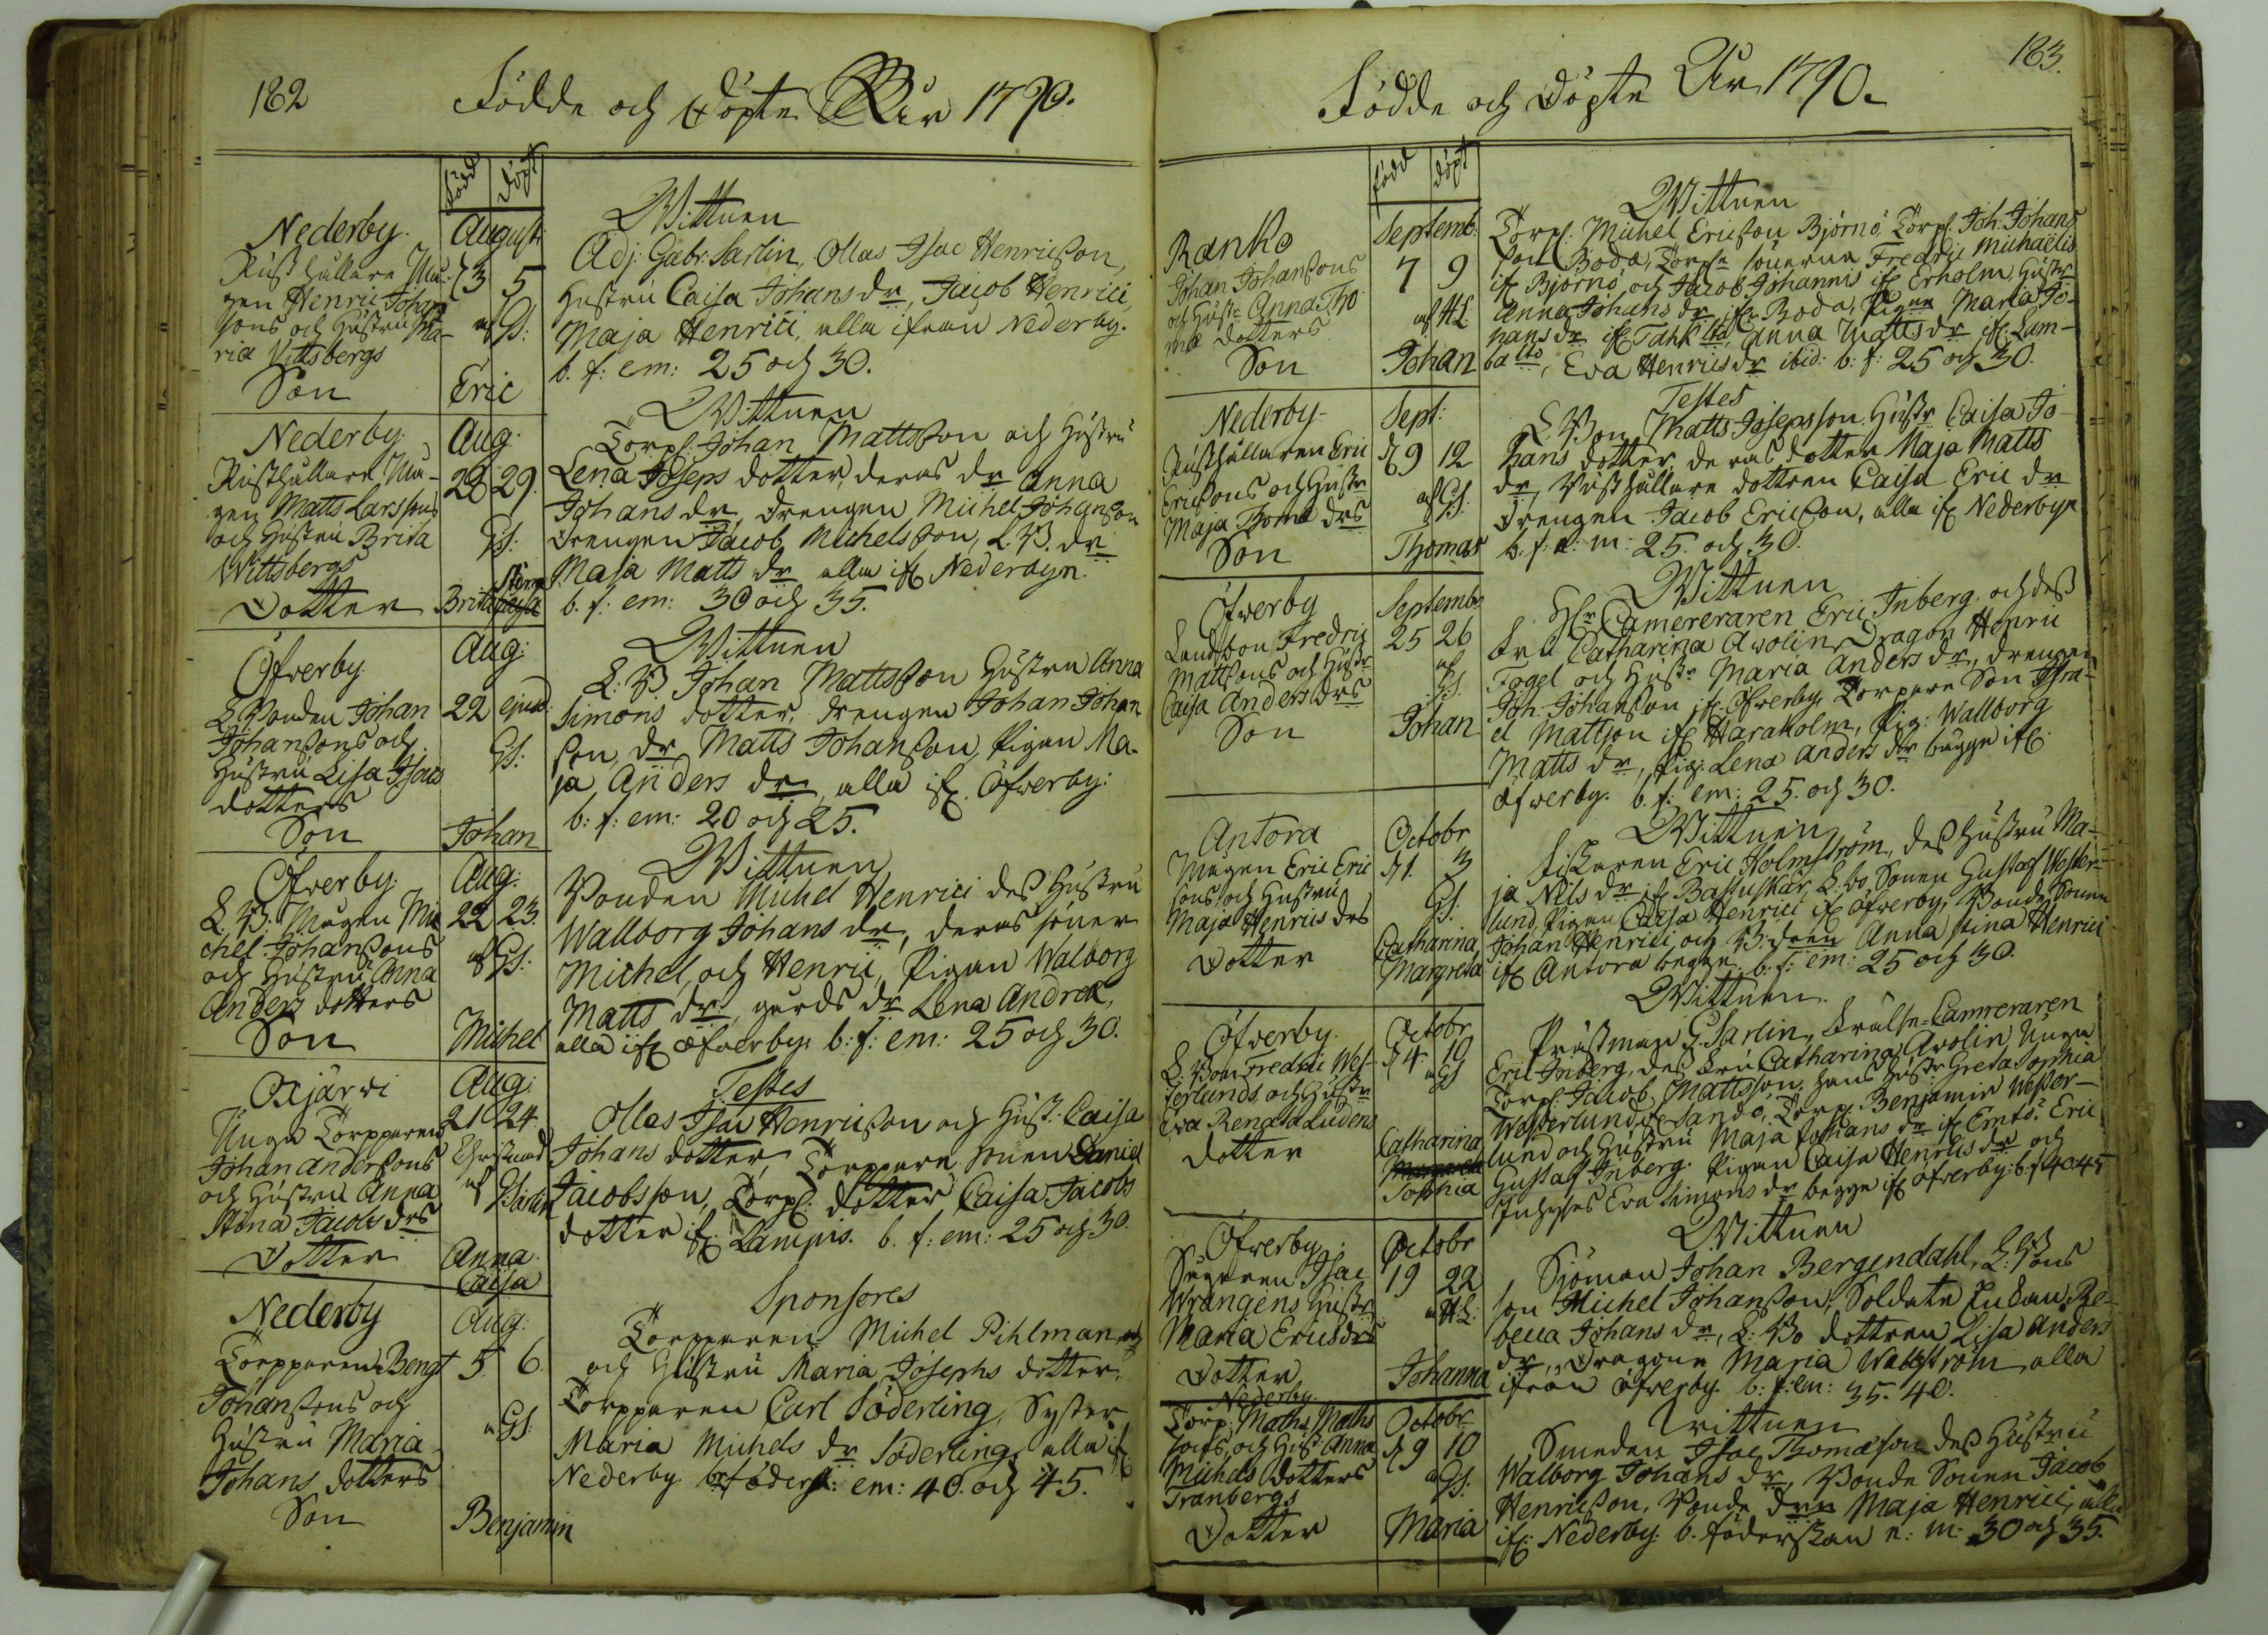 182
Födde och Döpte År 1790.
född
döpt
Nederby.
Rusthållare Må-
gen Henric Johan
sons och Hustru Ma-
ria Vittsbergs
Son
August:
3 5
af Gs:
Eric
Wittnen
Adj: Gabr: Sarlin, Ollas Isac Henricsson,
Hustru Caisa Johans dr, Jacob Henrici,
Maja Henrici, alla ifrån Nederby.
b. f: em: 25 och 30.
Nederby.
Rusthållare Må-
gen Matts Larssons
och Hustru Brita
Wittsbergs
Dotter
Aug:
28 29.
Gs:
Brita Stina
Caisa
Wittnen
Torp: Johan Mattsson och Hustru
Lena Joseps dotter, deras dr Anna
Johans dr, drengen Michel Johansson
drengen Jacob Michelsson, L. B. dr
Maja Matts dr alla ifr Nederbyn.
b. f: em: 30 och 35.
Öfverby.
L Bonden Johan
Johanssons och
Hustru Lisa Isacs
dotters
Son
Aug:
22 ejusd
Gs:
Johan
Wittnen
L: B. Johan Mattsson Hustru Anna
Simons dotter, drengen Johan Johan
son, dr Matts Johansson, Pigan Ma-
ja Anders dr, alla ifr. Öfverby:
b: f: em: 20 och 25.
Öfverby.
L. B: Mågen Mi
chel Johanssons
och Hustru Anna
Anders dotters
Son
Aug:
22 23.
af Gs:
Michel
Wittnen
Bonden Michel Henrici dess Hustru
Wallborg Johans dr, deras söner
Michel och Henric, Pigan Walborg
Matts dr, gårds dr Lena Andreæ,
alla ifr Öfverby: b: f: em: 25 och 30.
Oxjärwi
Unga Torpparens
Johan Anderssons
och Hustru Anna
Stina Jacobs drs
Dotter
Aug:
21 24.
af G Sarlin
Anna
Caisa
Testes
Ollas Isac Henricsson och Hust: Caisa
Johans dotter, Torppare sonen Daniel
Jacobsson, Torp: dotter Caisa Jacobs
dotter ifr: Lampis. b. f: em: 25 och 30.
Nederby
Torpparen Bengt
Johanssons och
Hustru Maria
Johans dotters
Son
Aug:
5. 6.
af Gs.
Benjamin
Sponsores
Torpparen Michel Pihlman
och Hustru Maria Josephs dotter,
Torpparen Carl Söderling, Syster
Maria Michels dr Söderling, alla ifr
Nederby b. födersk: em: 40. och 45.
183.
Födde och Döpte År 1790.
född
döpt
Ranko
Johan Johanssons
och Hustr Anna Tho
mæ dotters
Son
Septemb:
7 9
af HL
Johan
Wittnen
Torp: Michel Ericsson Björnö, Torp: Joh: Johans
son Boda, Torpre sönerne Fredric Michaëlis
ifr Björnö, och Jacob Johannis ifr Erholm, Hustr
Anna Johans dr ifr Boda, Pigan Maria Jo-
hans dr ifr Tahk lto, Anna Matts dr ifr Lam-
ba lto, Eva Henrics dr ibid: b: f: 25 och 30.
Nederby.
Rusthållaren Eric
Ericssons och Hustr
Maja Thomæ drs
Son
Sept:
9 12
af Gs.
Thomas
Testes
L. Bon Matts Josepsson Hustr Caisa Jo-
hans dotter, deras dotter Maja Matts
dr, Rusthållare dottren Caisa Eric dr
drengen Jacob Ericsson, alla ifr Nederbyn
b. f: e: m: 25. och 30.
Öfverby
Landbon Fredric
Mattssons och Hustr
Caisa Anders drs
Son
Septembr
25 26
af
Gs.
Johan
Wittnen
Hr Camereraren Eric Inberg, och dess
fru Catharina Avolin, Dragon Henric
Fogel och Hustr Maria Anders dr, drengen
Joh: Johansson ifr Öfverby Torpare Son Isra-
el Mattson ifr Haraholm, Pig: Wallborg
Matts dr, Pig: Lena Anders dr bägge ifr:
Öfwerby. b. f: em: 25. och 30.
Antora
Mågen Eric Eric
sons och Hustru
Maja Henrics drs
Dotter
Octobr
1. 3
Gs.
Catharina
Margreta
Wittnen
Fiskaren Eric Holmström, des Hustru Ma-
ja Nils dr ifr Bastuskär, L. bo Sonen Gustaf Wester-
lund, Pigan Caisa Henrici ifr Öfverby, Bonde sonen
Johan Henrici och B: dren Anna Stina Henrici
ifr Antora begge. b: f: em: 25 och 30.
Öfverby.
L. Bon Fredric Wes-
terlunds och Hustr
Eva Renata Ludens
Dotter
Octobr
4. 10
af Gs
Catharina
Sophia
Wittnen.
Prästman G. Sarlin, Krålse-Camreraren
Eric Inberg, des fru Catharina Avolin, Unga
Torp: Jacob Mattsson, hans Hustr Greta Sophia
Westerlund ifr Sandö, Torp: Benjamin Wester-
lund och Hustru Maja Johans dr ifr Emtö, Eric
Gustaf Inberg. Pigan Caisa Henrics dr och
Inhyses Eva Simons dr begge ifr Öfverby: b: f 40. 45
Öfverby.
Isac
Wrangens Hustr
Maria Erics drs
Dotter
Octobr
19 22
af HL:
Johanna
Wittnen
Sjöman Johan Bergendahl, L: Bons
son Michel Johansson, Soldate Enkan Re-
becca Johans dr, L: Bo dottren Lisa Anders
dr, Dragone Maria Wallström, alla
ifrån Öfverby. b: f: em: 35. 40.
Nederby.
Torp: Maths Maths
sons och Hust Anna
Michels dotters
Tranbergs
Dotter
Octobr
9 10
af Gs:
Maria
Wittnen
Smeden Isac Thomæson des Hustru
Walborg Johans dr, Bonde Sonen Jacob
Henricsson, Bonde dren Maja Henrici, alla
ifr: Nederby. b. föderskan e: m: 30 och 35.